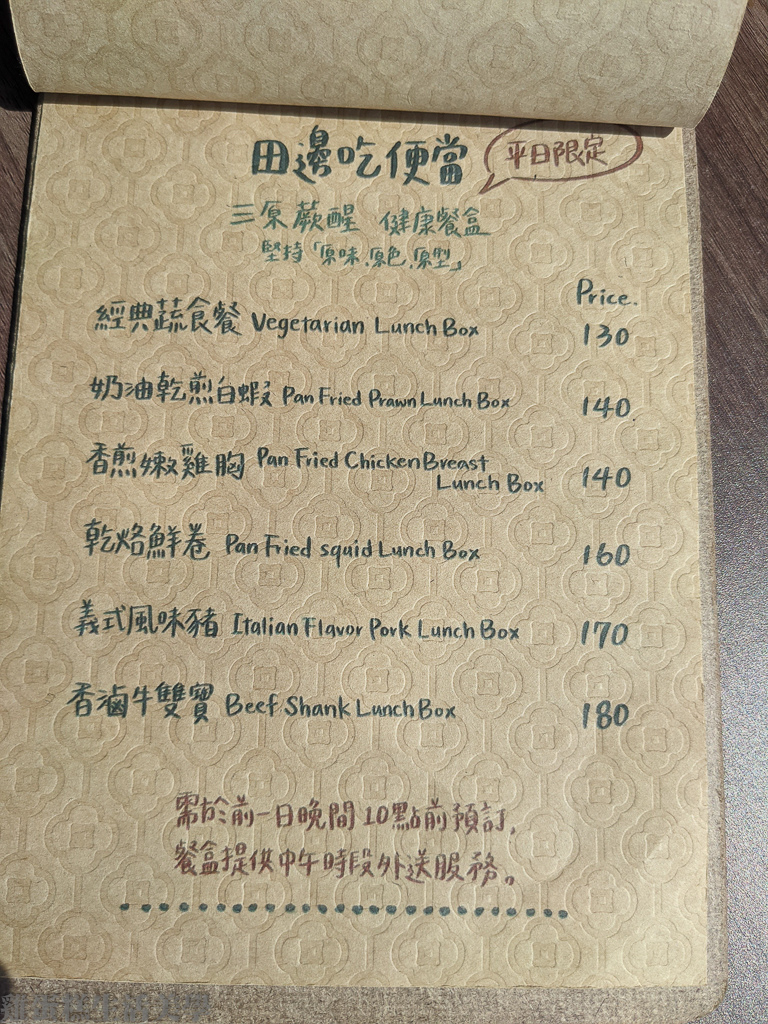 田邊吃便當 平日限定
三原蕨醒 健康餐盒
堅持「原味.原色.原型」
Price.
經典蔬食餐 Vegetarian Lunch Box 130
奶油乾煎白蝦 Pan Fried Prawn Lunch Box 140
香煎嫩雞胸 Pan Fried Chicken Breast
Lunch Box 140
乾烙鮮卷 Pan Fried squid Lunch Box 160
義式風味豬 Italian Flavor Pork Lunch Box 170
香滷牛雙寶 Beef Shank Lunch Box 180
需於前一日晚間10點前預訂,
餐盒提供中午時段外送服務。